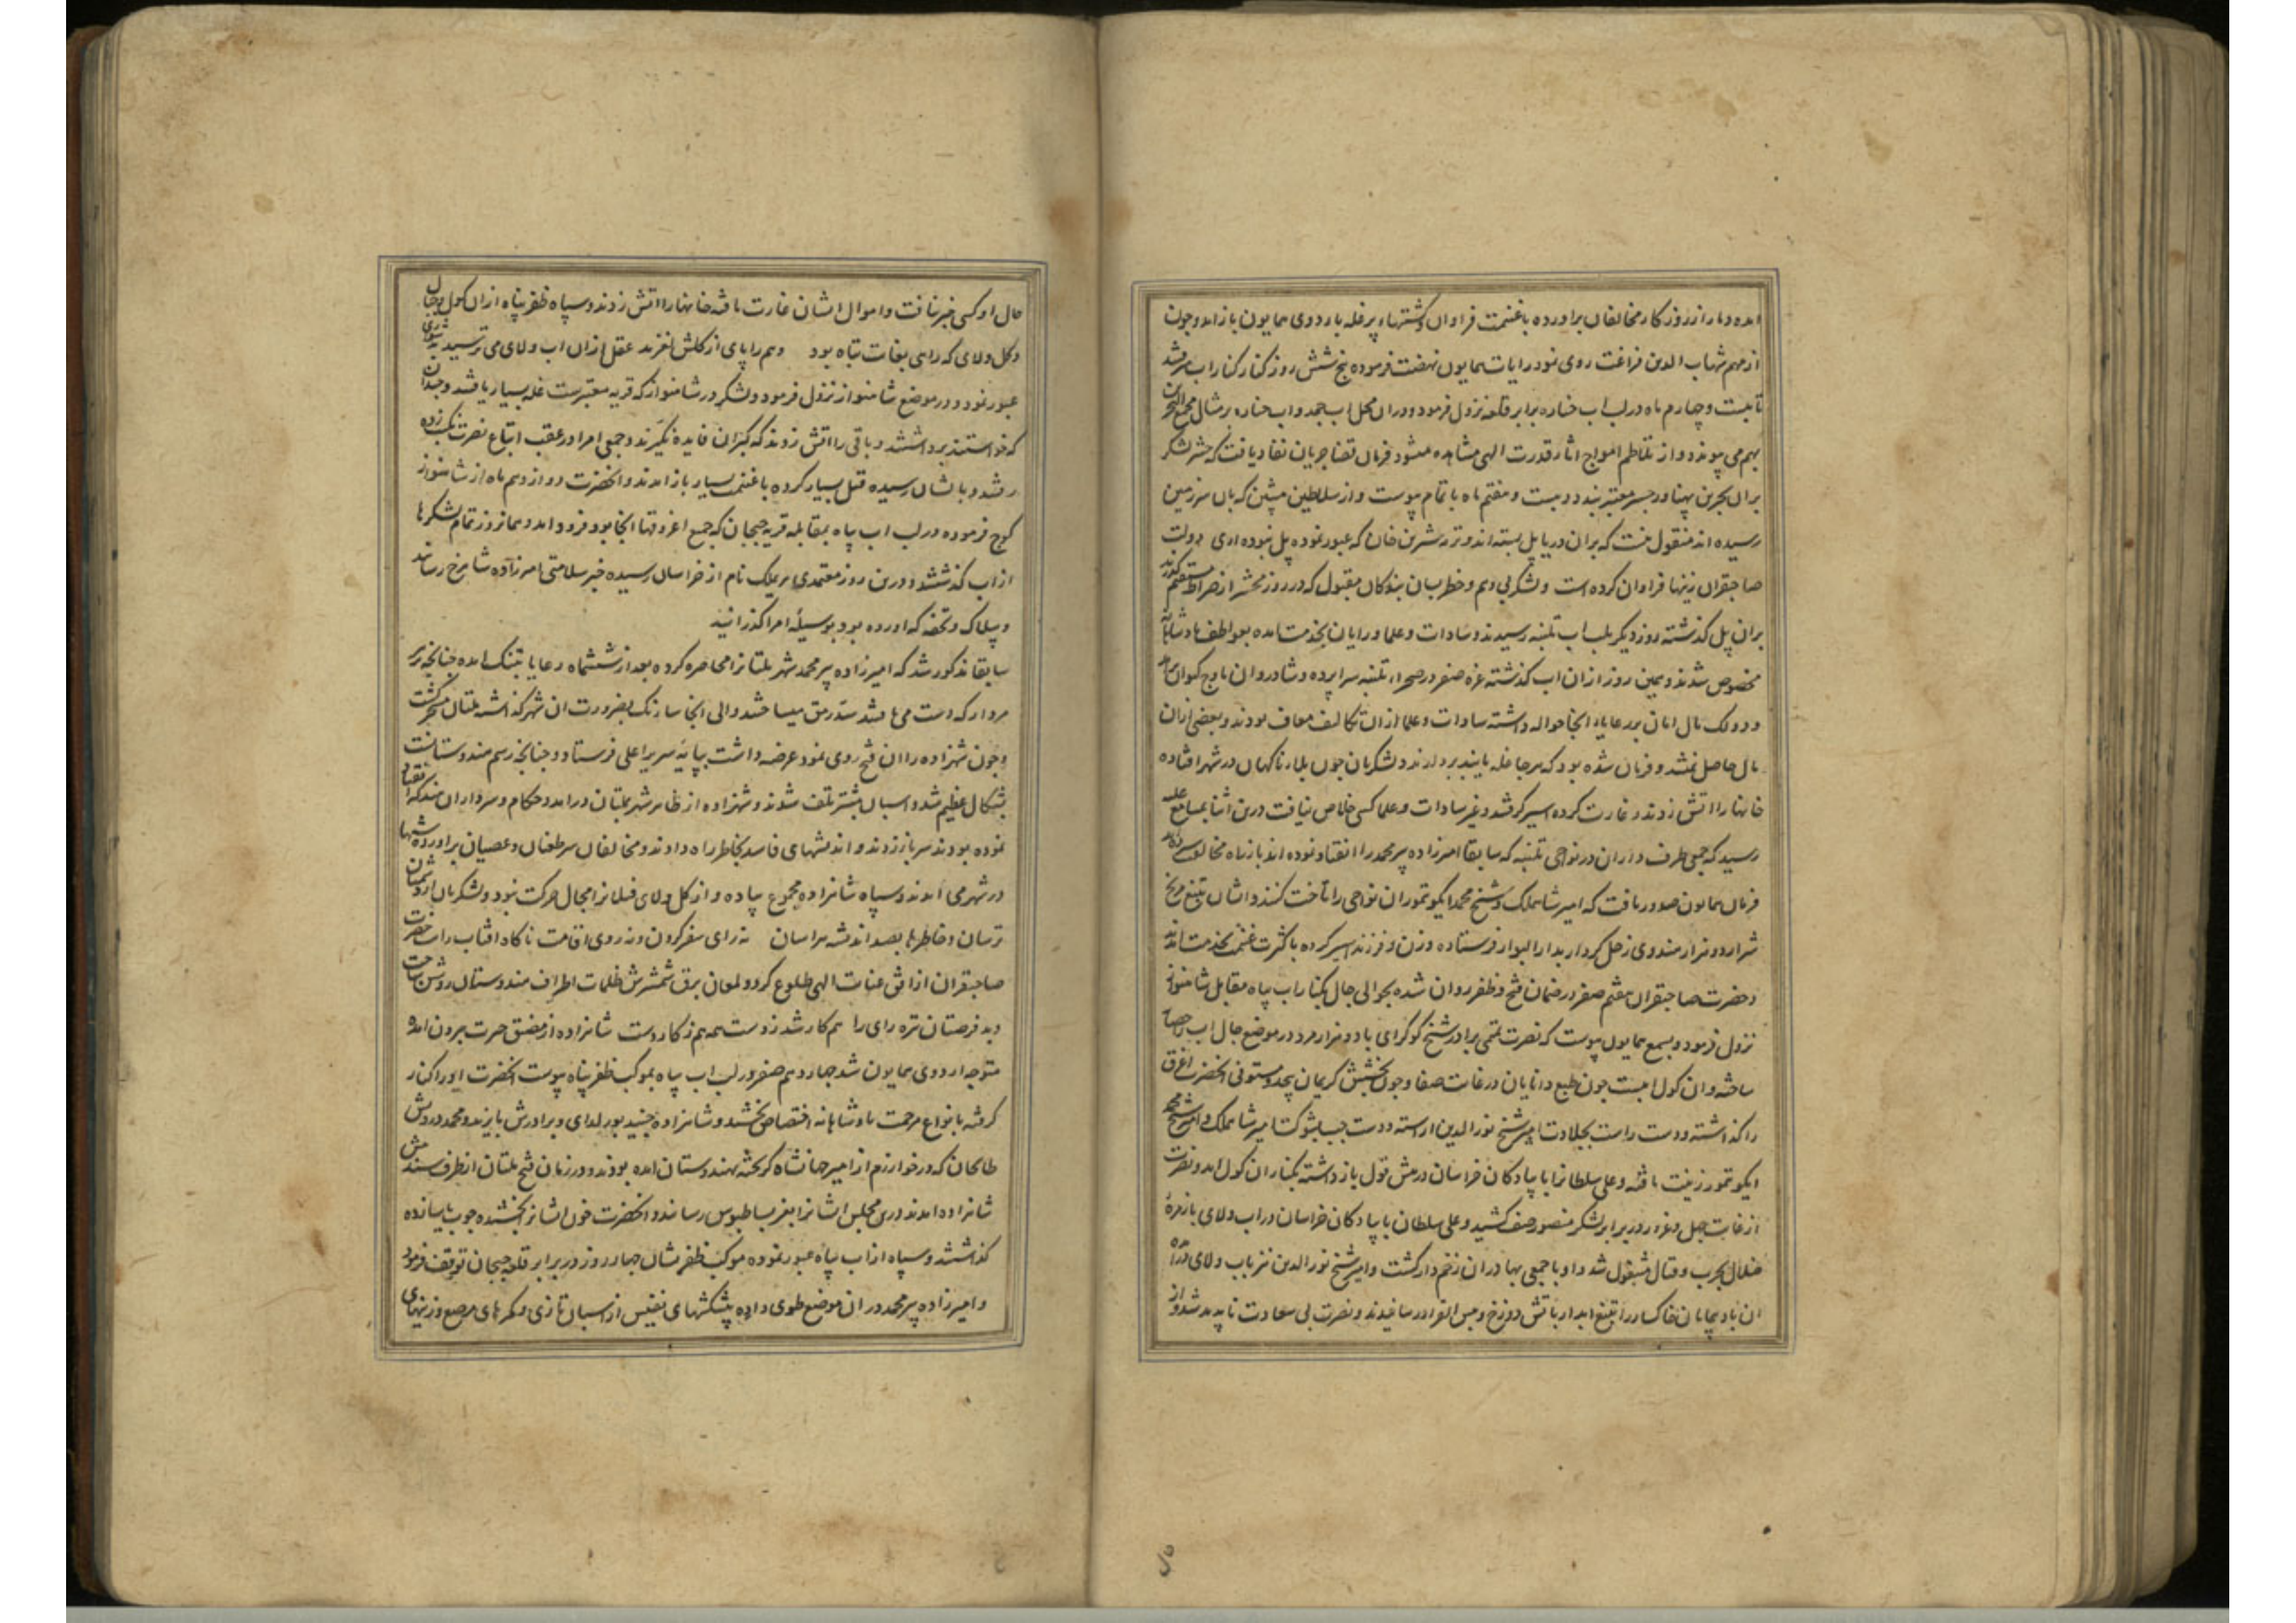 امده دمار از روزکار مخالفان براورده با غنیمت فراوان و کشتیهاء پر غله باردوی همایون باز امد و چون
از مهم شهاب الدین فراغت روی نمود رایات همایون نهضت فرموده پنج شش روز کنار کنار اب می رفتند
تا بیست و چهارم ماه در لب اب جناره برابر قلعه نزول فرمود و در ان محل اب جمد و اب جناره بر مثال مجمع البحرین
بهم می پیوندد و از تلاطم امواج اثار قدرت الهی مشاهده میشود فرمان قضا جریان نفاد یافت که حشر لشکر
بران بحرین پهناور جسر معتبر بندد و بیست و هفتم ماه باتمام پیوست و از سلاطین پیشین که بان سرزمین
رسیده اند منقول نیست که بران دریا پل بسته اند و ترمه شرین خان که عبور نموده پل نبوده اری دولت
صاحبقران زینها فراوان کرده است و لشکر بی وهم و خطر بسان بندکان مقبول که در روز محشر از صراط مستقیم گذرند
بران پل گذشته روز دیکر بلب اب تلنبه رسیدند و سادات و علما و رایان بخدمت امده بعواطف پادشاهانه
مخصوص شدند و همین روز از ان اب کذشته غره صفر در صحراء تلنبه سراپرده و شادروان باوج کیوان رسید
و دو لک مال امان بر رعایاء انجا حواله داشته سادات و علما از ان تکالیف معاف بودند و بعضی از ان
مال حاصل نمیشد و فرمان شده بود که هرجا غله یابند بردارند و لشکریان چون بلاء ناکهان در شهر افتاده
خانها را اتش زدند و غارت کرده اسیر کرفتند و غیر سادات و علما کسی خلاص نیافت درین اثنا بمسامع علیه
رسید که جمعی طرف داران در نواحی تلنبه که سابقا امیرزاده پیر محمد را انقیاد نموده اند باز راه مخالفت سپرده اند
فرمان همایون صدور یافت که امیر شاهملک و شیخ محمد ایکو تمور ان نواحی را تاخت کنند و ایشان بتیغ مریخ
شرار دو هزار هندوی زحل کردار بدار البوار فرستاده و زن و فرزند اسیر کرده با کثرت غنیمت بخدمت امدند
و حضرت صاحبقران هفتم صفر در ضمان فتح و ظفر روان شده بحوالی جال بکنار اب پیاه مقابل شاهنواز
نزول فرمود و بسمع همایون پیوست که نصرت نمی برادر شیخ کوکرای با دو هزار مرد در موضع جال اب را حصار
ساخته و ان کول ابیست چون طبع دانایان در غایت صفا و چون بخشش کریمان بیحد و مستوفی انحضرت اغرق
را کذاشته و دست راست بجلادت امیر شیخ نور الدین اراسته و دست چپ بشوکت امیر شاهملک و امیر شیخ محمد
ایکو تمور زینت یافته و علی سلطان با پیادکان خراسان در پیش قول باز داشته بکنار ان کول امد و نصرت
از غایت جهل و غرور در برابر لشکر منصور صف کشید و علی سلطان با پیادکان خراسان در اب ولای با زمره
ضلال بحرب و قتال مشغول شد و او با جمعی بهادران زخم دار کشت و امیر شیخ نور الدین نیز باب ولای درامده
ان باد پیمایان خاکسار را بتیغ ابدار باتش دوزخ و بیس القرار رسانیدند و نصرت بی سعادت ناپدید شد و از
حال او کسی خبر نیافت و اموال ایشان غارت یافته خانها را اتش زدند و سپاه ظفر پناه از ان کول و جال
و کل ولای که راهی بغایت تباه بود وهم را پای از کلش لغزد عقل از ان اب ولای می ترسید بدشواری
عبور نمود و در موضع شاهنواز نزول فرمود و لشکر در شاهنواز که قریه معتبرست غله بسیار یافتند و چندان
که خواستند برداشتند و باقی را اتش زدند که کبران فایده نکیرند و جمعی امرا در عقب اتباع نصرت نکبت زده
رفتند و بایشان رسیده قتل بسیار کرده با غنیمت بسیار باز امدند و انحضرت دوازدهم ماه از شاهنواز
کوچ فرموده در لب اب پیاه بمقابله قریه جنجان که جمیع اغروقها انجا بود فرود امد و همانروز تمام لشکرها
از اب کذشتند و درین روز معتمدی هری ملک نام از خراسان رسیده خبر سلامتی امیرزاده شاهرخ رسانید
و بیلاک و تحفه که اورده بود بوسیلهٔ امرا کذرانید
سابقا مذکور شد که امیرزاده پیر محمد شهر ملتانرا محاصره کرده بعد از ششماه رعایا بتنک امده چنانچه بر
مردار که دست می یافتند سد رمق میساختند والی انجا سارنک بضرورت ان شهر کذاشته ملتان مسخر کشت
و چون شهزاده را ان فتح روی نمود عرضه داشت بپایه سریر اعلی فرستاد و چنانچه رسم هندوستانست
بشکال عظیم شد و اسبان بیشتر تلف شدند و شهزاده از ظاهر شهر بملتان درامد و حکام و سرداران هند که انقیاد
نموده بودند سر باز زدند و اندیشهای فاسد بخاطر راه دادند و مخالفان سر طغیان و عصیان براورده شبها
در شهر می امدند و سپاه شاهزاده مجموع پیاده و از کل ولای فیلانرا مجال حرکت نبود و لشکریان از دشمنان
ترسان و خاطرها بصد اندیشه هراسان نه رای سفر کردن و نه روی اقامت ناکاه افتاب رایت حضرت
صاحبقران از افق عنایت الهی طلوع کرد و لمعان برق شمشیرش ظلمات اطراف هندوستان روشن ساخت
و بد فرصتان تیره رای را هم کار شد ز دست همه هم ز کار دست شاهزاده از مضیق حیرت بیرون امده
متوجه اردوی همایون شد چهاردهم صفر در لب اب پیاه بموکب ظفر پناه پیوست انحضرت او را کنار
کرفته بانواع مرحمت پادشاهانه اختصاص بخشید و شاهزاده جنید بورلدای و برادرش بایزید و محمد درویش
طایخان که در خوارزم از امیر جهانشاه کریخته بهندوستان امده بودند و در زمان فتح ملتان از طرف هند پیش
شاهزاده امدند درین مجلس ایشانرا بعز بساطبوس رسانید و انحضرت خون ایشانرا بخشیده چوب یاسا زده
کذاشتند و سپاه از اب پیاه عبور نموده موکب ظفر نشان چهار روز در برابر قلعه جنجان توقف فرمود
و امیرزاده پیر محمد در ان موضع طوی داده پیشکشهای نفیس از اسبان تازی و کمرهای مرصع و زینهای